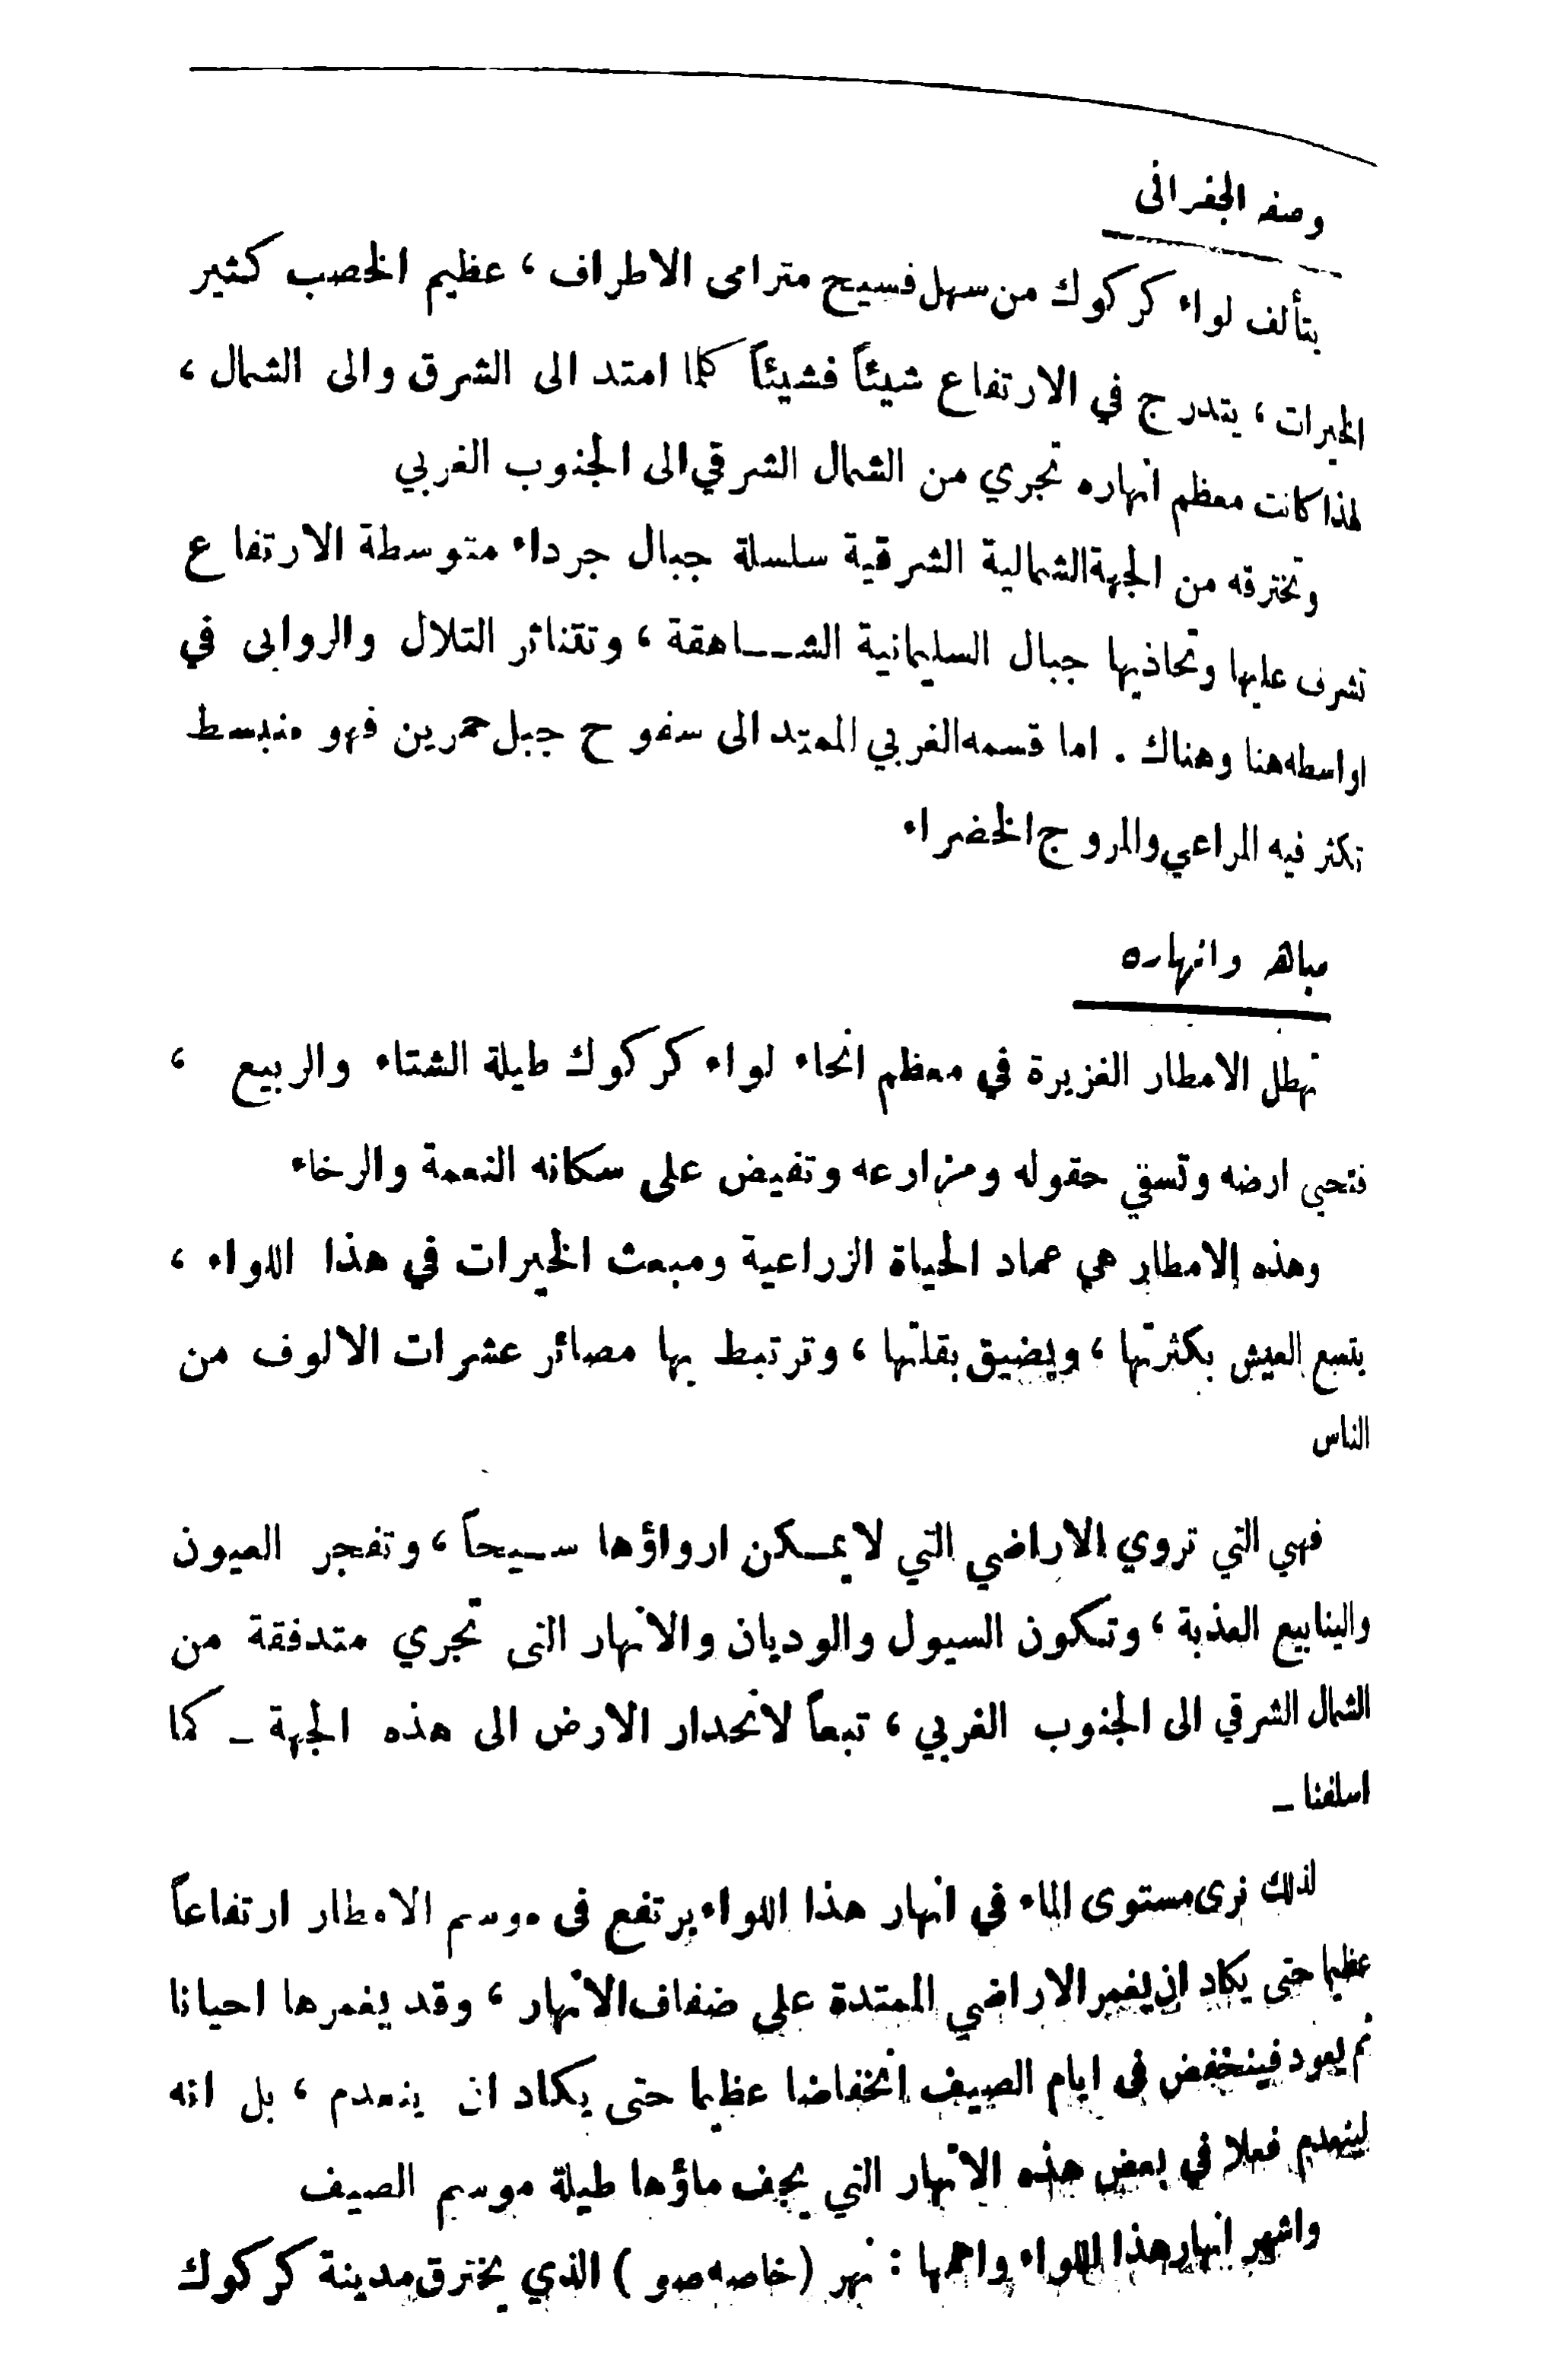 وصفه الجغرافى
يتألف لواء كركوك من سهل فسيح مترامى الاطراف ، عظيم الخصب كثير
الخيرات ، يتدرج في الارتفاع شيئاً فشيئاً كلما امتد الى الشرق والى الشمال ،
لهذا كانت معظم انهاره تجري من الشمال الشرقي الى الجنوب الغربي
وتخترقه من الجهة الشمالية الشرقية سلسلة جبال جرداء متوسطة الارتفاع
تشرف عليها وتحاذيها جبال السليمانية الشـاهقة ، وتتناثر التلال والروابى في
اواسطه هنا وهناك . اما قسمه الغربي الممتد الى سفوح جبل حمرين فهو منبسط
تكثر فيه المراعي والمروج الخضراء
مياهه وانهاره
تهطل الامطار الغزيرة في معظم انحاء لواء كركوك طيلة الشتاء والربيع ،
فتحي ارضه وتسقي حقوله ومزارعه وتفيض على سكانه النعمة والرخاء
وهذه الامطار هي عماد الحياة الزراعية ومبعث الخيرات في هذا اللواء ،
يتسع العيش بكثرتها ، ويضيق بقلتها ، وترتبط بها مصائر عشرات الالوف من
الناس
فهي التي تروي الاراضي التي لا يمـكن ارواؤها سـيحاً ، وتفجر العيون
والينابيع العذبة ، وتكون السيول والوديان والانهار التى تجري متدفقة من
الشمال الشرقي الى الجنوب الغربي ، تبعاً لانحدار الارض الى هذه الجهة ـ كما
اسلفنا ـ
لذلك نرى مستوى الماء في انهار هذا اللواء يرتفع فى موسم الامطار ارتفاعاً
عظيما حتى يكاد ان يغمر الاراضي الممتدة على ضفاف الانهار ، وقد يغمرها احيانا
ثم يعود فينخفض فى ايام الصيف انخفاضا عظيما حتى يكاد ان ينعدم ، بل انه
لينعدم فعلا في بعض هذه الانهار التي يجف ماؤها طيلة موسم الصيف
واشهر انهار هذا اللواء واهمها : نهر ( خاصه صو ) الذي يخترق مدينة كركوك